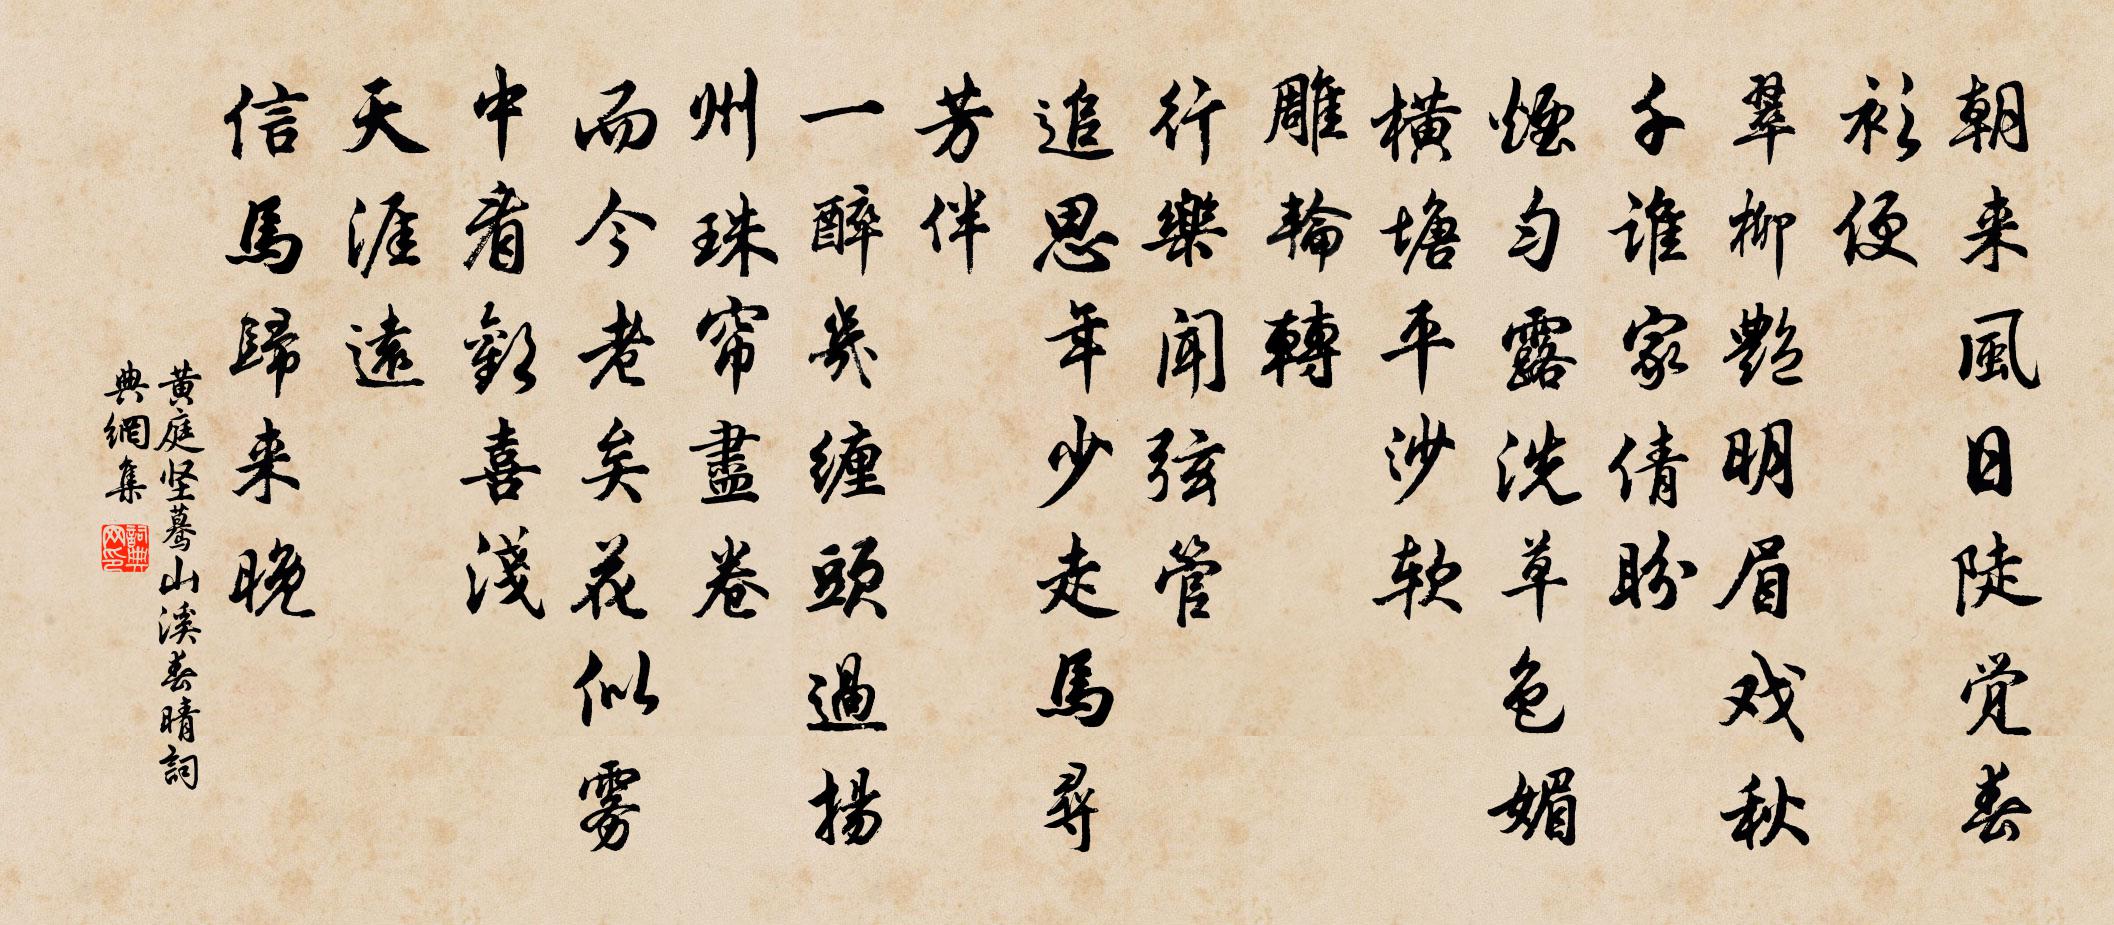 朝来風日陡觉春
衫便
翠柳艷明眉戏秋
千谁家倩盼
煙匀露洗草色媚
横塘平沙软
雕輪轉
行樂闻弦管
追思年少走馬尋
芳伴
一醉幾缠頭過揚
州珠帘盡卷
而今老矣花似雾
中看歡喜淺
天涯遠
信馬歸来晚
黄庭坚驀山溪春晴詞
典網集
詞典
网印